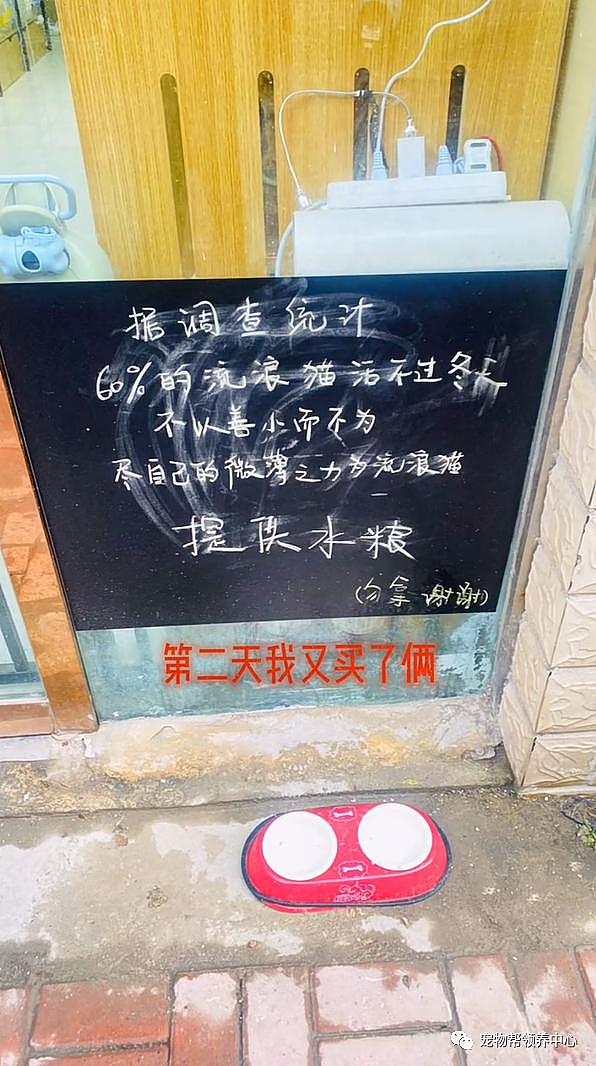 据调查统计
60%的流浪猫活不过冬天
不以善小而不为
尽自己的微薄之力为流浪猫
提供水粮
(勿拿 谢谢)
第二天我又买了俩
宠物帮领养中心